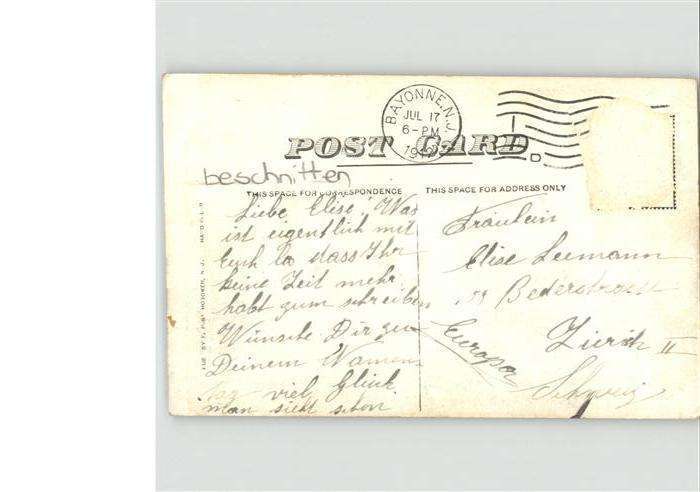 BAYONNE, N.J.
JUL 17
6-PM
1912
D
POST CARD
beschnitten
THIS SPACE FOR CORRESPONDENCE
THIS SPACE FOR ADDRESS ONLY
Liebe Elise! Was
ist eigentlich mit
Euch la dass Ihr
keine Zeit mehr
habt zum schreiben
Wünsche Dir zu
Deinem Namens
tag viel Glück
man sieht schon
Fräulein
Elise Leemann
Bederstrasse
Zürich II
Europa
Schweiz
HOBOKEN, N. J.